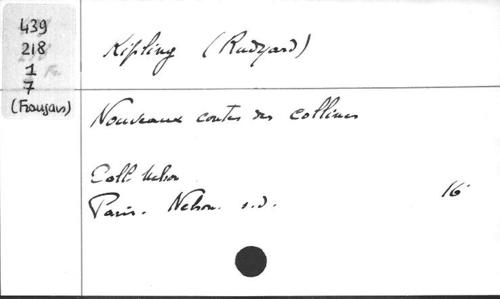 439
218
1
7
(Français)
Kipling (Rudyard)
Nouveaux contes des collines
Coll. Nelson
Paris. Nelson. s.d. 16°